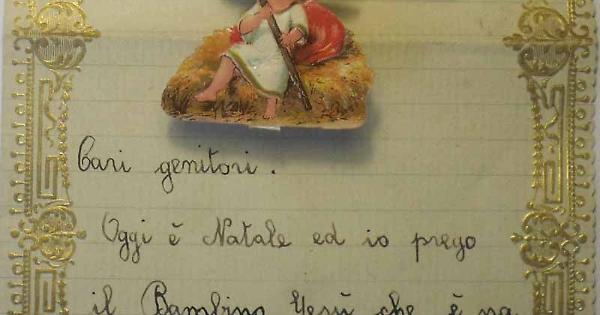 Cari genitori.
Oggi è Natale ed io prego
il Bambino Gesù che è na